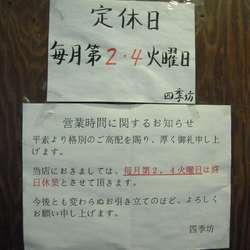 定休日
毎月第2・4火曜日
四季坊
営業時間に関するお知らせ
平素より格別のご高配を賜り、厚く御礼申し上
げます。
当店におきましては、毎月第2，4火曜日は終
日休業とさせて頂きます。
今後とも変わらぬお引き立てのほど、よろしく
お願い申し上げます。
四季坊